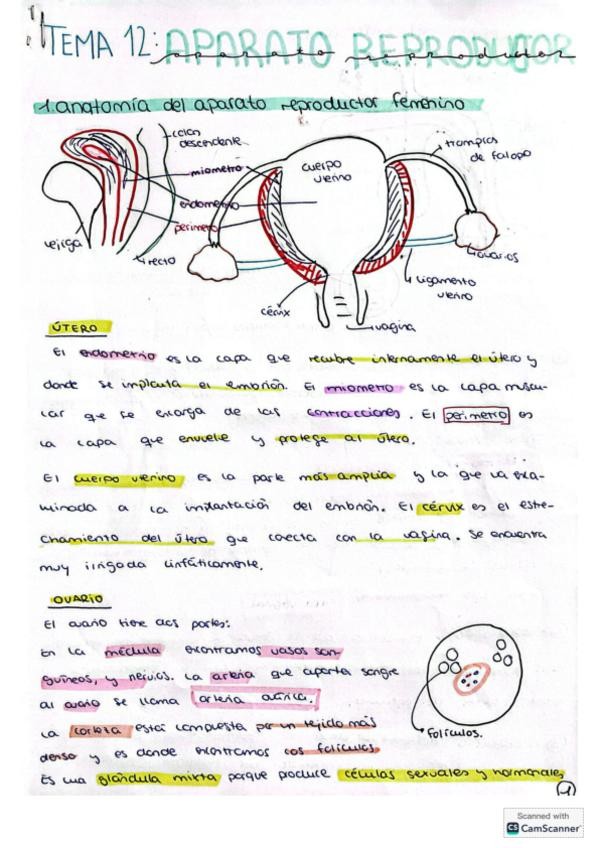 TEMA 12: APARATO REPRODUCTOR
aparato reproductor
1. anatomía del aparato reproductor femenino
colon
descendente
miometrio
endometrio
perimetrio
vejiga
recto
cuerpo
uterino
trompas
de falopio
ovarios
ligamento
uterino
cérvix
vagina
ÚTERO
El endometrio es la capa que recubre internamente el útero y
donde se implanta el embrión. El miometrio es la capa muscu-
lar que se encarga de las contracciones. El perimetro es
la capa que envuelve y protege al útero.
El cuerpo uterino es la parte más amplia y la que
minada a la implantación del embrión. El cérvix es el estre-
chamiento del útero que conecta con la vagina. Se encuentra
muy irrigada linfáticamente.
OVARIO
El ovario tiene dos partes:
En la médula encontramos vasos san-
guíneos, y nervios. La arteria que aporta sangre
al ovario se llama arteria
La corteza está compuesta por un tejido más
denso y es donde encontramos los folículos.
Es una glándula mixta porque produce células sexuales y hormonales
folículos.
1
Scanned with
CS CamScanner